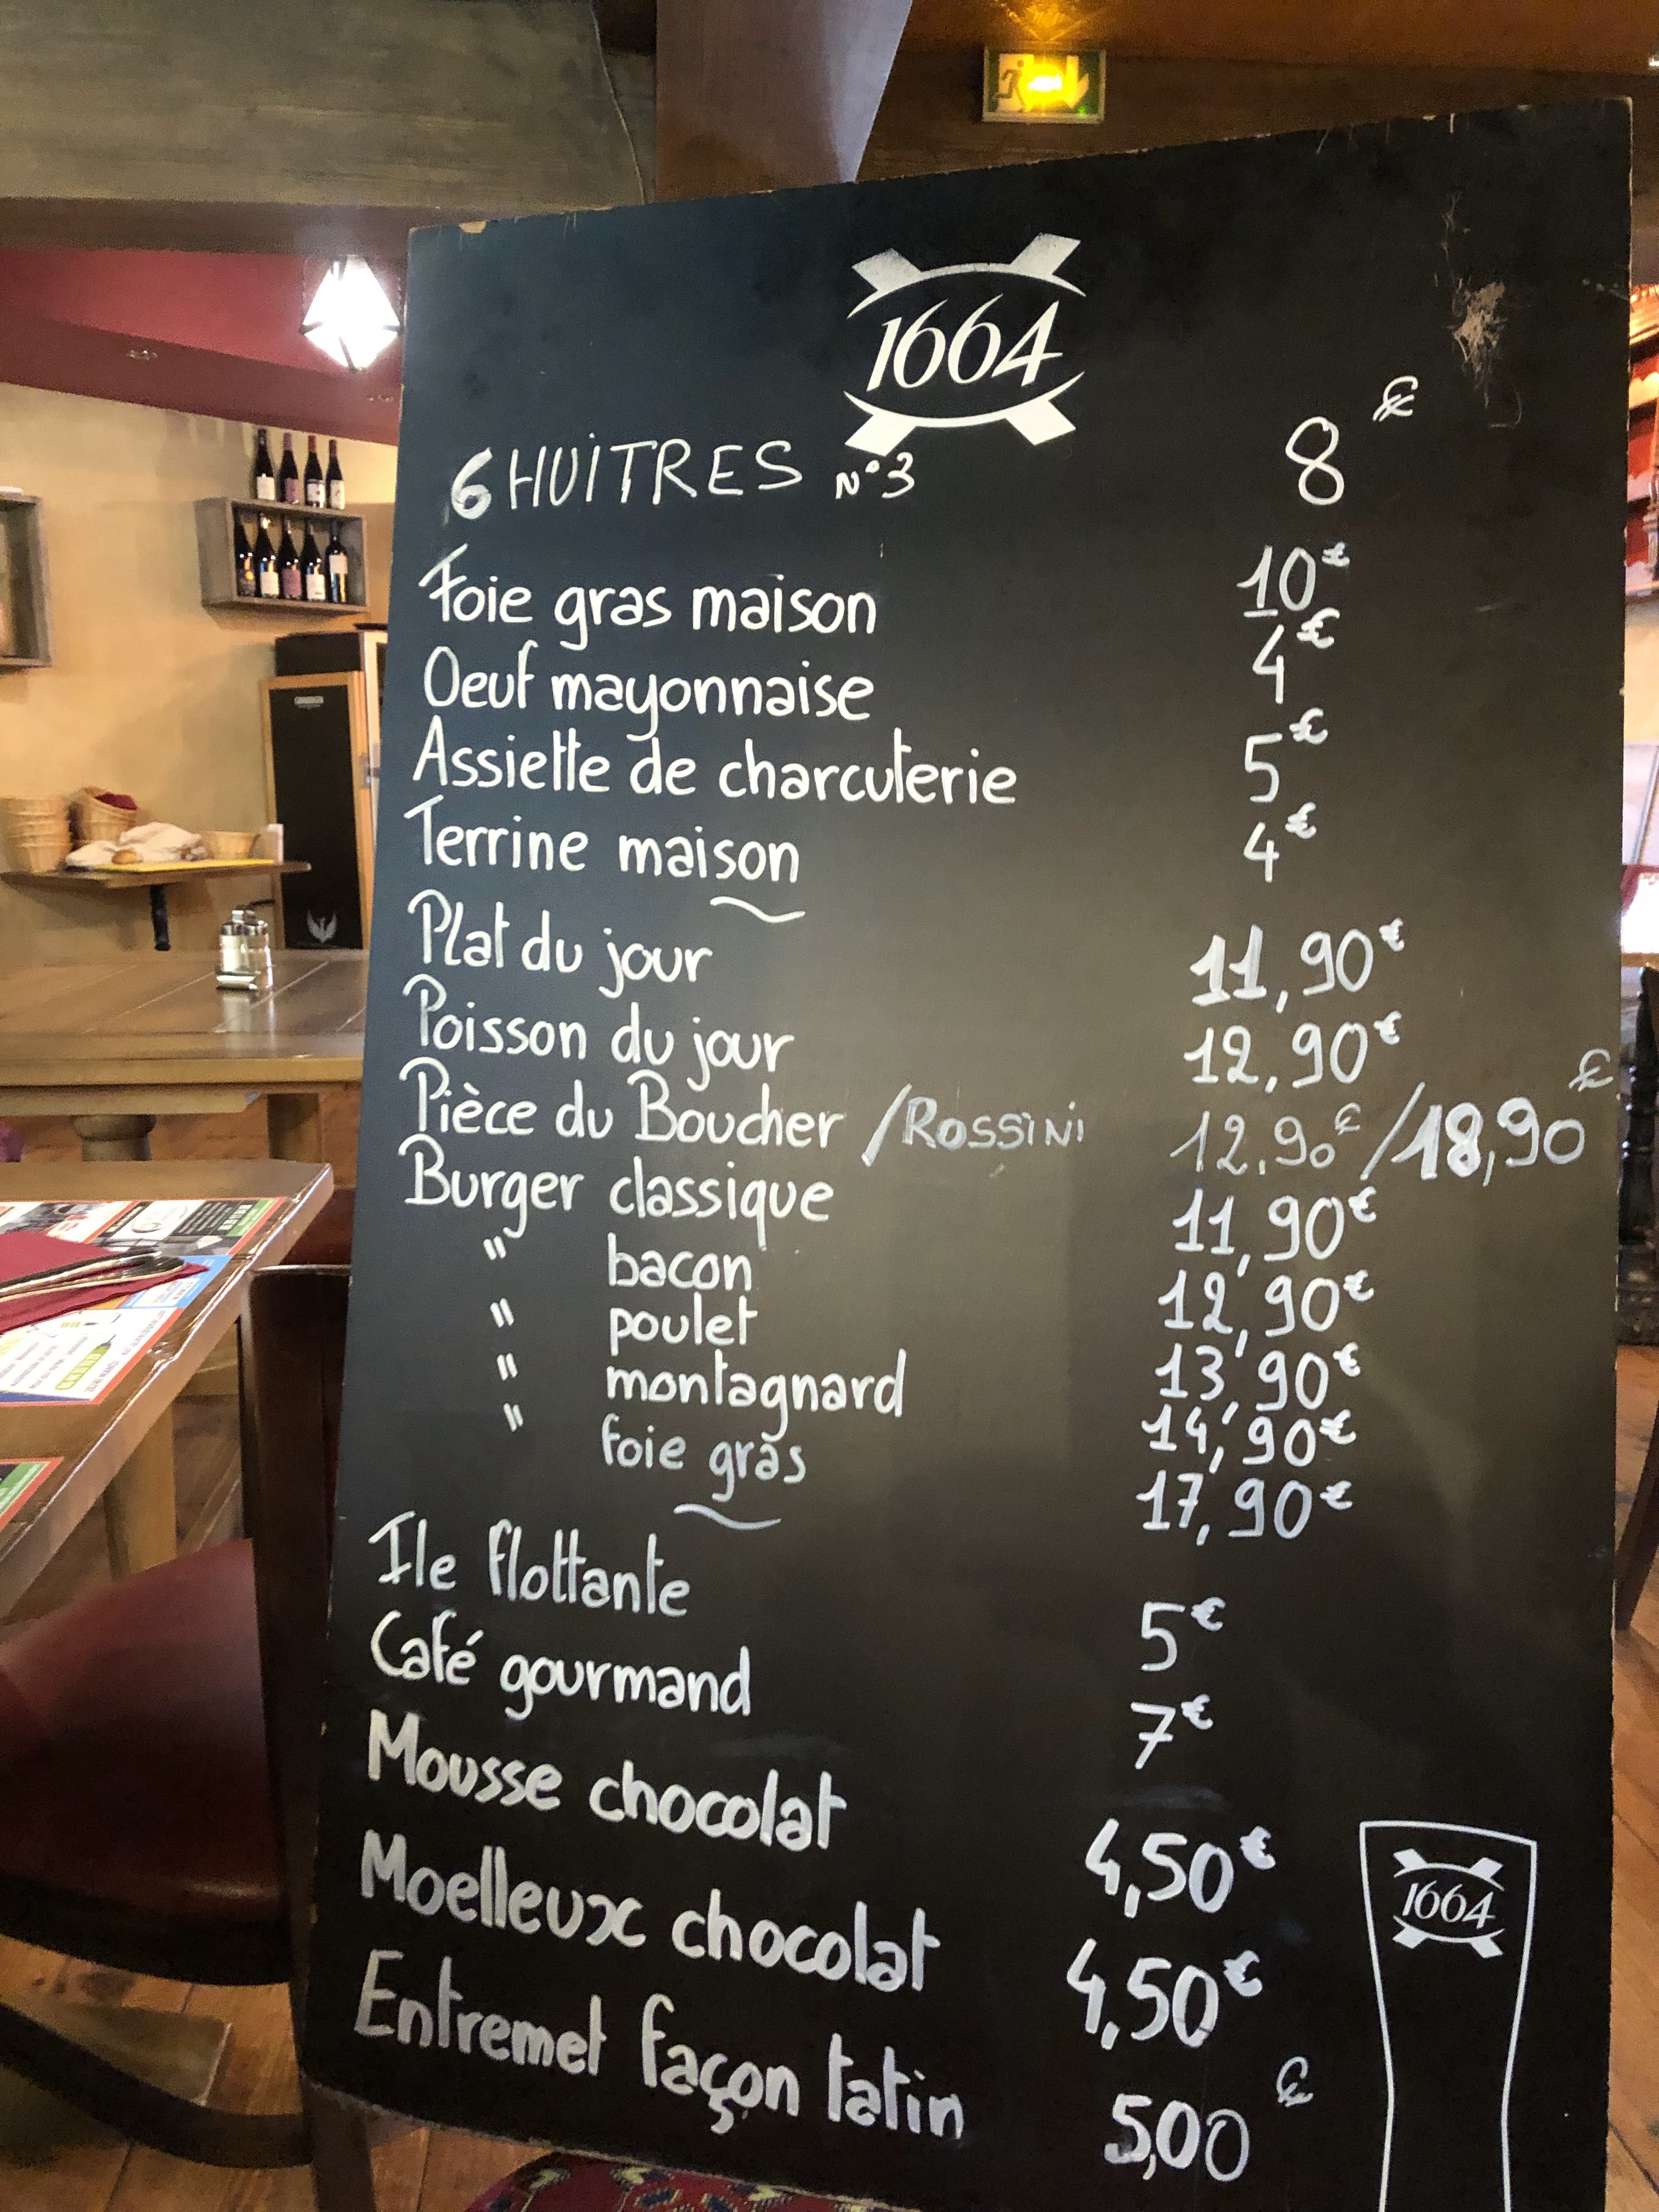 1664
6 HUITRES N°3 8€
Foie gras maison 10€
Oeuf mayonnaise 4€
Assiette de charcuterie 5€
Terrine maison 4€
Plat du jour 11,90€
Poisson du jour 12,90€
Pièce du Boucher / ROSSINI 12,90€ / 18,90€
Burger classique 11,90€
" bacon 12,90€
" poulet 13,90€
" montagnard 14,90€
" foie gras 17,90€
Ile flottante 5€
Café gourmand 7€
Mousse chocolat 4,50€
Moelleux chocolat 4,50€
Entremet façon tatin 5,00€
1664